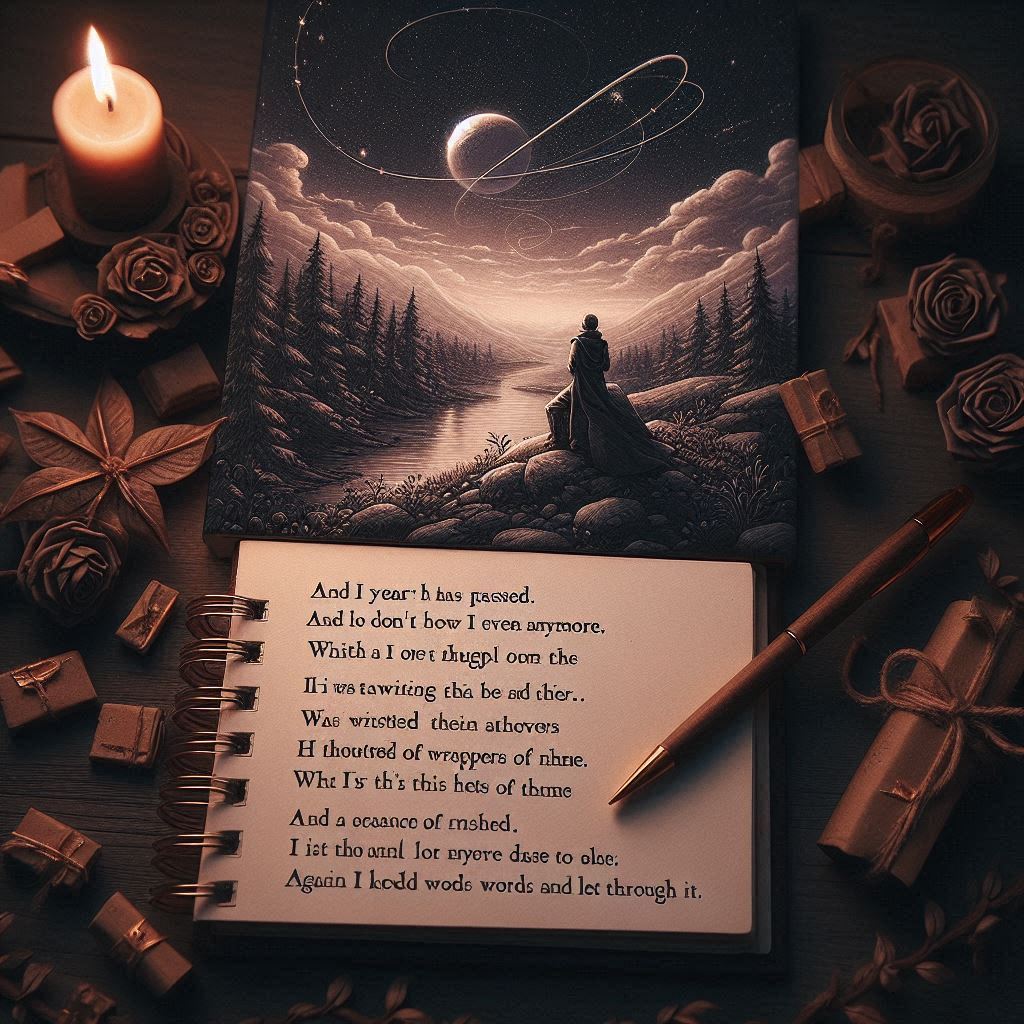 And I year h has passed.
And lo don't how I even anymore,
Which a I ore t thugpl oom the
Ih was tawriting tha be ad thier..
Was wirstied thein athovers
H thoutred of wrappers of nhne.
Wht I's th's this hets of thme
And a ocaance of mshed.
I ist tho anıl lor myore dase to olse:
Again I kodd wods words and let through it.